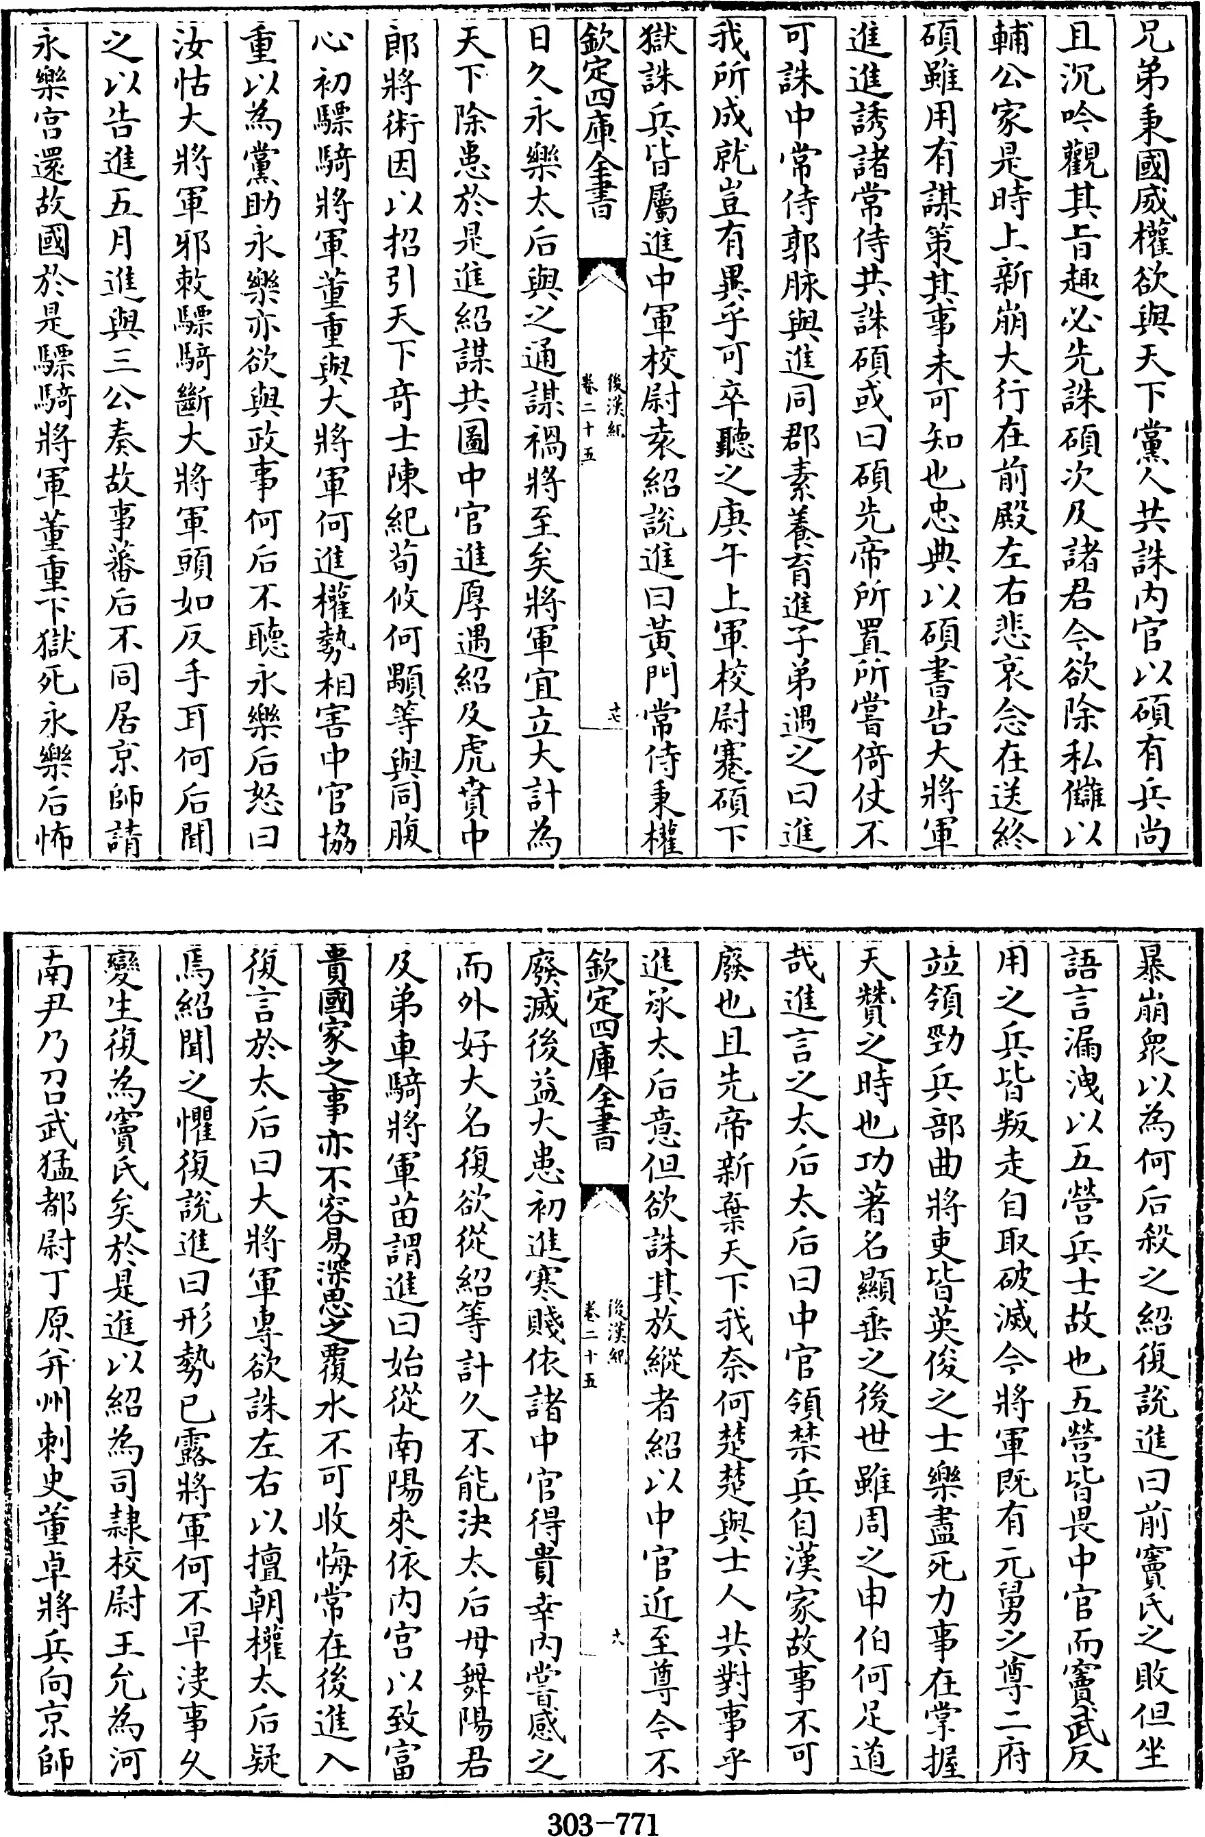 兄弟秉國威權欲與天下黨人共誅內官以碩有兵尚
且沉吟觀其旨趣必先誅碩次及諸君今欲除私讎以
輔公家是時上新崩大行在前殿左右悲哀念在送終
碩雖用有謀策其事未可知也忠典以碩書告大將軍
進進誘諸常侍共誅碩或曰碩先帝所置所嘗倚仗不
可誅中常侍郭脉與進同郡素養育進子弟遇之曰進
我所成就豈有異乎可卒聽之庚午上軍校尉蹇碩下
獄誅兵皆屬進中軍校尉袁紹說進曰黃門常侍秉權
欽定四庫全書
後漢紀
卷二十五
十七
日久永樂太后與之通謀禍將至矣將軍宜立大計為
天下除患於是進紹謀共圖中官進厚遇紹及虎賁中
郎將術因以招引天下奇士陳紀荀攸何顒等與同腹
心初驃騎將軍董重與大將軍何進權勢相害中官協
重以為黨助永樂亦欲與政事何后不聽永樂后怒曰
汝怙大將軍邪敕驃騎斷大將軍頭如反手耳何后聞
之以告進五月進與三公奏故事蕃后不同居京師請
永樂宮還故國於是驃騎將軍董重下獄死永樂后怖
暴崩眾以為何后殺之紹復說進曰前竇氏之敗但坐
語言漏洩以五營兵士故也五營皆畏中官而竇武反
用之兵皆叛走自取破滅今將軍既有元舅之尊二府
並領勁兵部曲將吏皆英俊之士樂盡死力事在掌握
天贊之時也功著名顯垂之後世雖周之申伯何足道
哉進言之太后太后曰中官領禁兵自漢家故事不可
廢也且先帝新棄天下我奈何楚楚與士人共對事乎
進承太后意但欲誅其放縱者紹以中官近至尊今不
欽定四庫全書
後漢紀
卷二十五
十八
廢滅後益大患初進寒賤依諸中官得貴幸內嘗感之
而外好大名復欲從紹等計久不能決太后母舞陽君
及弟車騎將軍苗謂進曰始從南陽來依內宮以致富
貴國家之事亦不容易深思之覆水不可收悔常在後進入
復言於太后曰大將軍專欲誅左右以擅朝權太后疑
焉紹聞之懼復說進曰形勢已露將軍何不早決事久
變生復為竇氏矣於是進以紹為司隸校尉王允為河
南尹乃召武猛都尉丁原并州刺史董卓將兵向京師
303-771